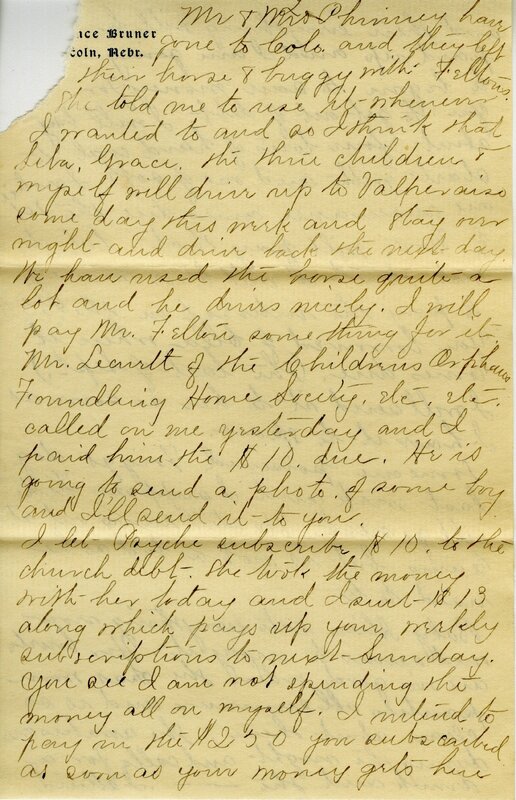 Mr & Mrs Phinney have
nce Bruner
coln, Nebr.
gone to Colo. and they left
their horse & buggy with Feltons.
She told me to use it whenever
I wanted to and so I think that
Grace, the three children &
myself will drive up to Valperaiso
some day this week and stay over
night and drive back the next day.
We have used the horse quite a
lot and he drives nicely. I will
pay Mr. Felton something for it.
Mr. of the Childrens Orphans
Foundling Home Society, etc, etc.
called on me yesterday and I
paid him the $10. due. He is
going to send a photo. of some boy
and I'll send it to you.
I let Psyche subscribe $10. to the
church debt. She took the money
with her today and I sent $13
along which pays up your weekly
subscriptions to next Sunday.
You see I am not spending the
money all on myself. I intend to
pay in the $250 you subscribed
as soon as your money gets here